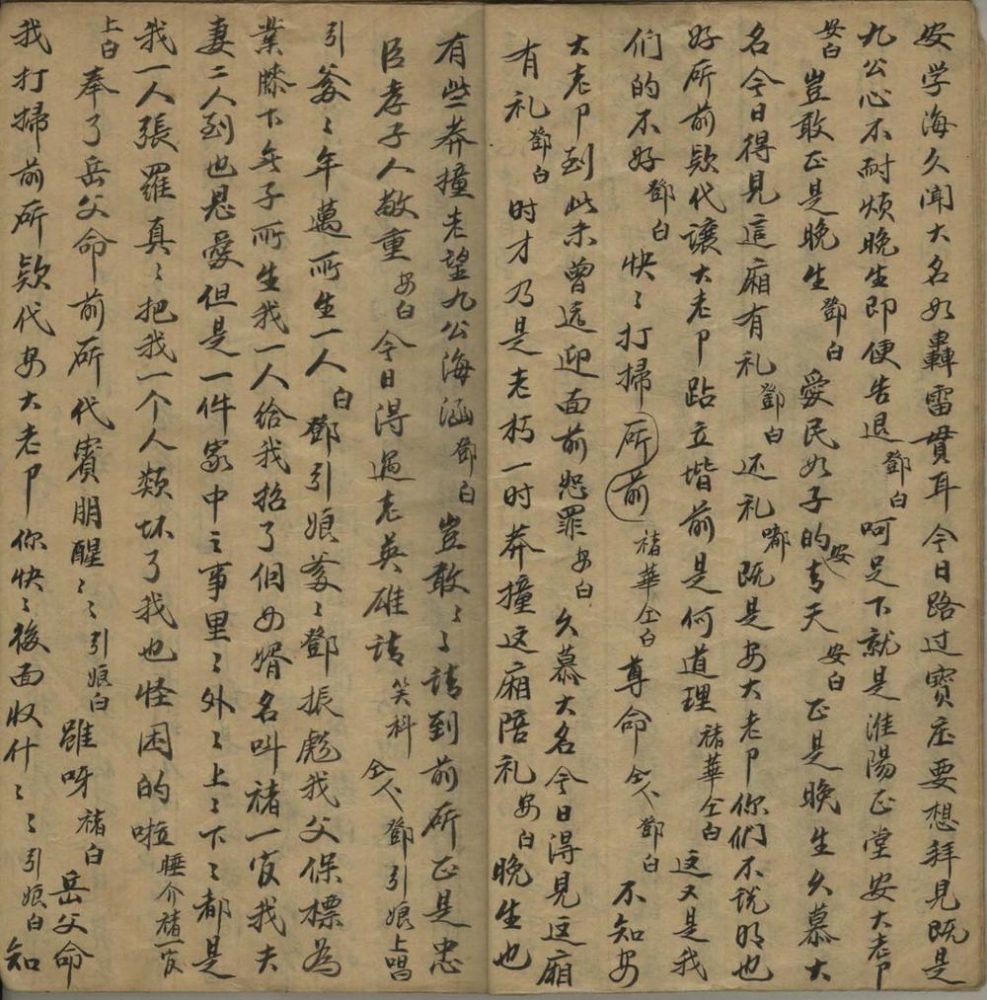 安学海久闻大名如轟雷貫耳今日路过寶庄要想拜見既是
九公心不耐烦晚生即便告退鄧白呵足下就是淮陽正堂安大老卩
安白豈敢正是晚生鄧白愛民如子的安青天安白正是晚生久慕大
名今日得見這廂有礼鄧白还礼嘟既是安大老卩你们不說明也
好所前欵代讓大老卩跕立堦前是何道理褚華仝白這又是我
们的不好鄧白快〻打掃所前褚華仝白尊命仝下鄧白不知安
大老卩到此未曾远迎面前恕罪安白久慕大名今日得見这廂
有礼鄧白时才乃是老朽一时莽撞这廂陪礼安白晚生也
有些莽撞老望九公海涵鄧白豈敢〻〻请到前所正是忠
臣孝子人敬重安白今日得遇老英雄请笑科仝下鄧引娘上唱
引爹〻年邁所生一人白鄧引娘爹〻鄧振彪我父保標為
業膝下無子所生我一人给我招了個女婿名叫褚一官我夫
妻二人到也恩愛但是一件家中之事里〻外〻上〻下〻都是
我一人張羅真〻把我一个人類坏了我也怪困的啦睡介褚一官
上白奉了岳父命前所代賓朋醒〻〻引娘白雖呀褚白岳父命
我打掃前所欵代安大老卩你快〻後面收什〻〻引娘白知